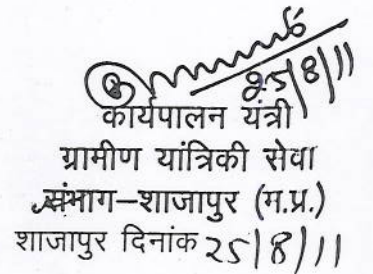 25/8/11
कार्यपालन यंत्री
ग्रामीण यांत्रिकी सेवा
संभाग–शाजापुर (म.प्र.)
शाजापुर दिनांक 25/8/11